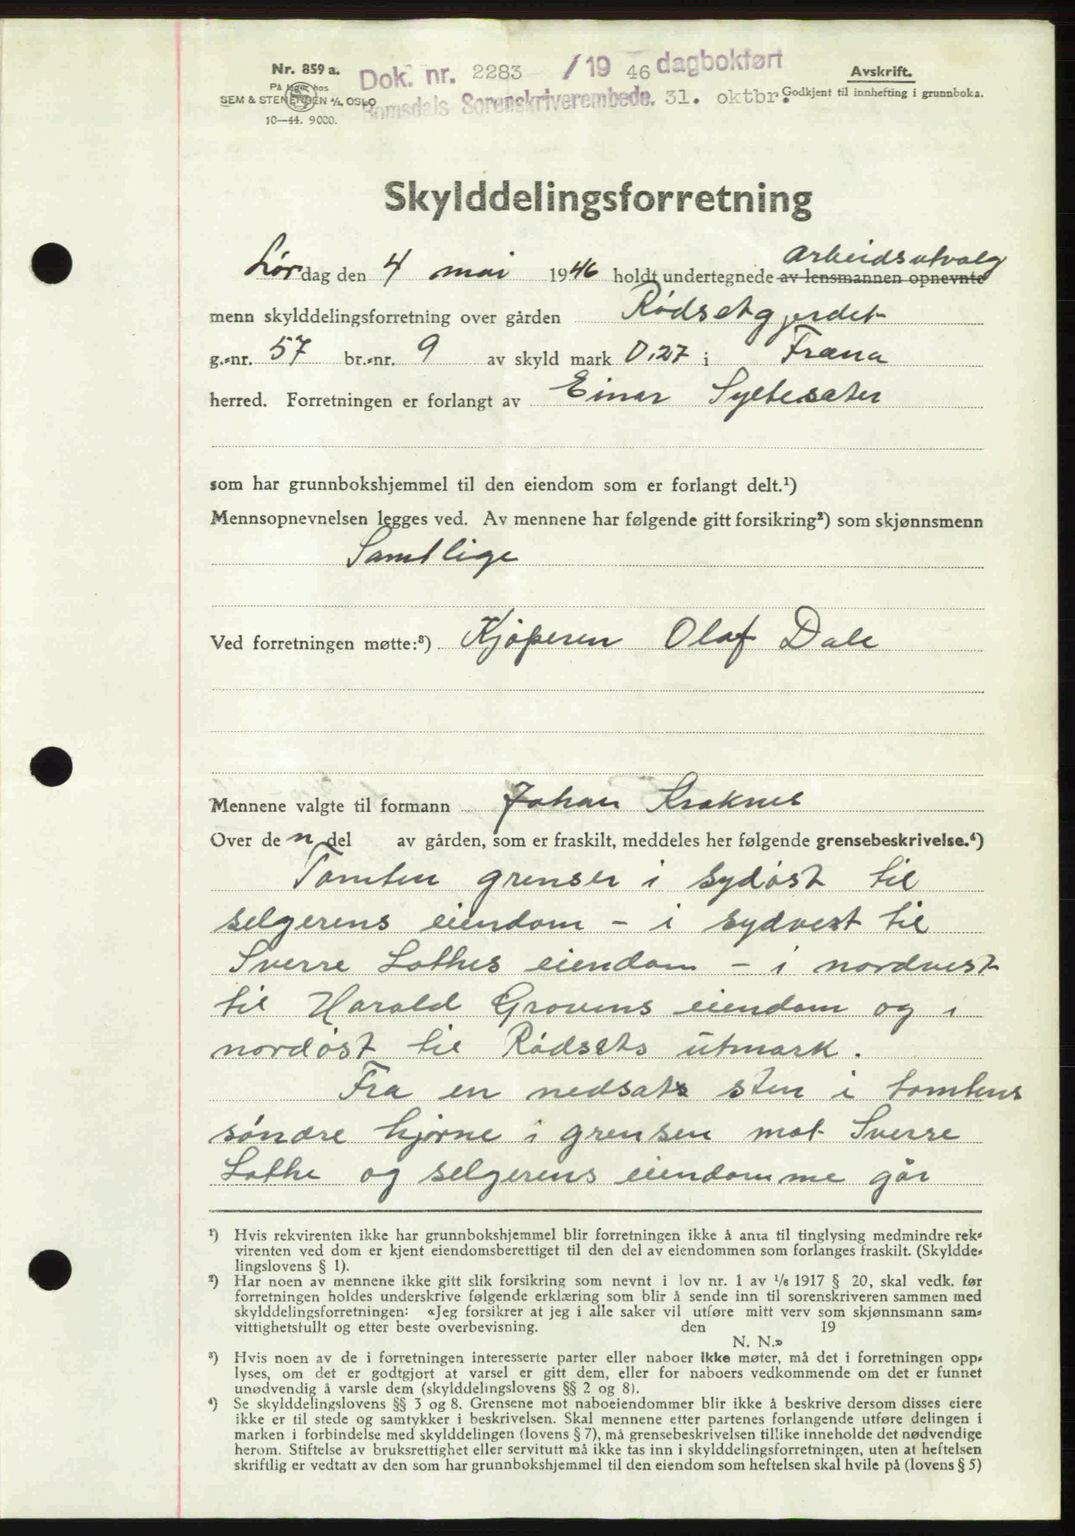 Nr. 859 a.
På lager hos
SEM & STENERSEN A/S, OSLO
10—44. 9000.
Dok. nr. 2283 / 19 46 dagbokført
Romsdals Sorenskriverembede. 31. oktbr.
Avskrift.
Godkjent til innhefting i grunnboka.
Skylddelingsforretning
Lørdag den 4 mai 1946 holdt undertegnede av lensmannen opnevnte arbeidsutvalg
menn skylddelingsforretning over gården Rødsetgjerdet
g.-nr. 57 br.-nr. 9 av skyld mark 0,27 i Fræna
herred. Forretningen er forlangt av Einar Syltesæter
som har grunnbokshjemmel til den eiendom som er forlangt delt.¹)
Mennsopnevnelsen legges ved. Av mennene har følgende gitt forsikring²) som skjønnsmenn
Samtlige
Ved forretningen møtte:³) Kjøperen Olaf Dale
Mennene valgte til formann Johan Kraknes
Over den del av gården, som er fraskilt, meddeles her følgende grensebeskrivelse.⁴)
Tomten grenser i sydøst til
selgerens eiendom – i sydvest til
Sverre Lothes eiendom – i nordvest
til Harald Grovens eiendom og i
nordøst til Rødsets utmark.
Fra en nedsat sten i tomtens
søndre hjørne i grensen mot Sverre
Lothe og selgerens eiendomme går
¹) Hvis rekvirenten ikke har grunnbokshjemmel blir forretningen ikke å anta til tinglysing medmindre rek-
virenten ved dom er kjent eiendomsberettiget til den del av eiendommen som forlanges fraskilt. (Skyldde-
lingslovens § 1).
²) Har noen av mennene ikke gitt slik forsikring som nevnt i lov nr. 1 av 1/8 1917 § 20, skal vedk. før
forretningen holdes underskrive følgende erklæring som blir å sende inn til sorenskriveren sammen med
skylddelingsforretningen: «Jeg forsikrer at jeg i alle saker vil utføre mitt verv som skjønnsmann sam-
vittighetsfullt og etter beste overbevisning. den 19
N. N.»
³) Hvis noen av de i forretningen interesserte parter eller naboer ikke møter, må det i forretningen opp-
lyses, om det er godtgjort at varsel er gitt dem, eller for naboers vedkommende om det er funnet
unødvendig å varsle dem (skylddelingslovens §§ 2 og 8).
⁴) Se skylddelingslovens §§ 3 og 8. Grensene mot naboeiendommer blir ikke å beskrive dersom disses eiere
ikke er til stede og samtykker i beskrivelsen. Skal mennene etter partenes forlangende utføre delingen i
marken i forbindelse med skylddelingen (lovens § 7), må grensebeskrivelsen tillike inneholde det nødvendige
herom. Stiftelse av bruksrettighet eller servitutt må ikke tas inn i skylddelingsforretningen, uten at heftelsen
skriftlig er vedtatt av den som har grunnbokshjemmel til den eiendom som heftelsen skal hvile på (lovens § 5)